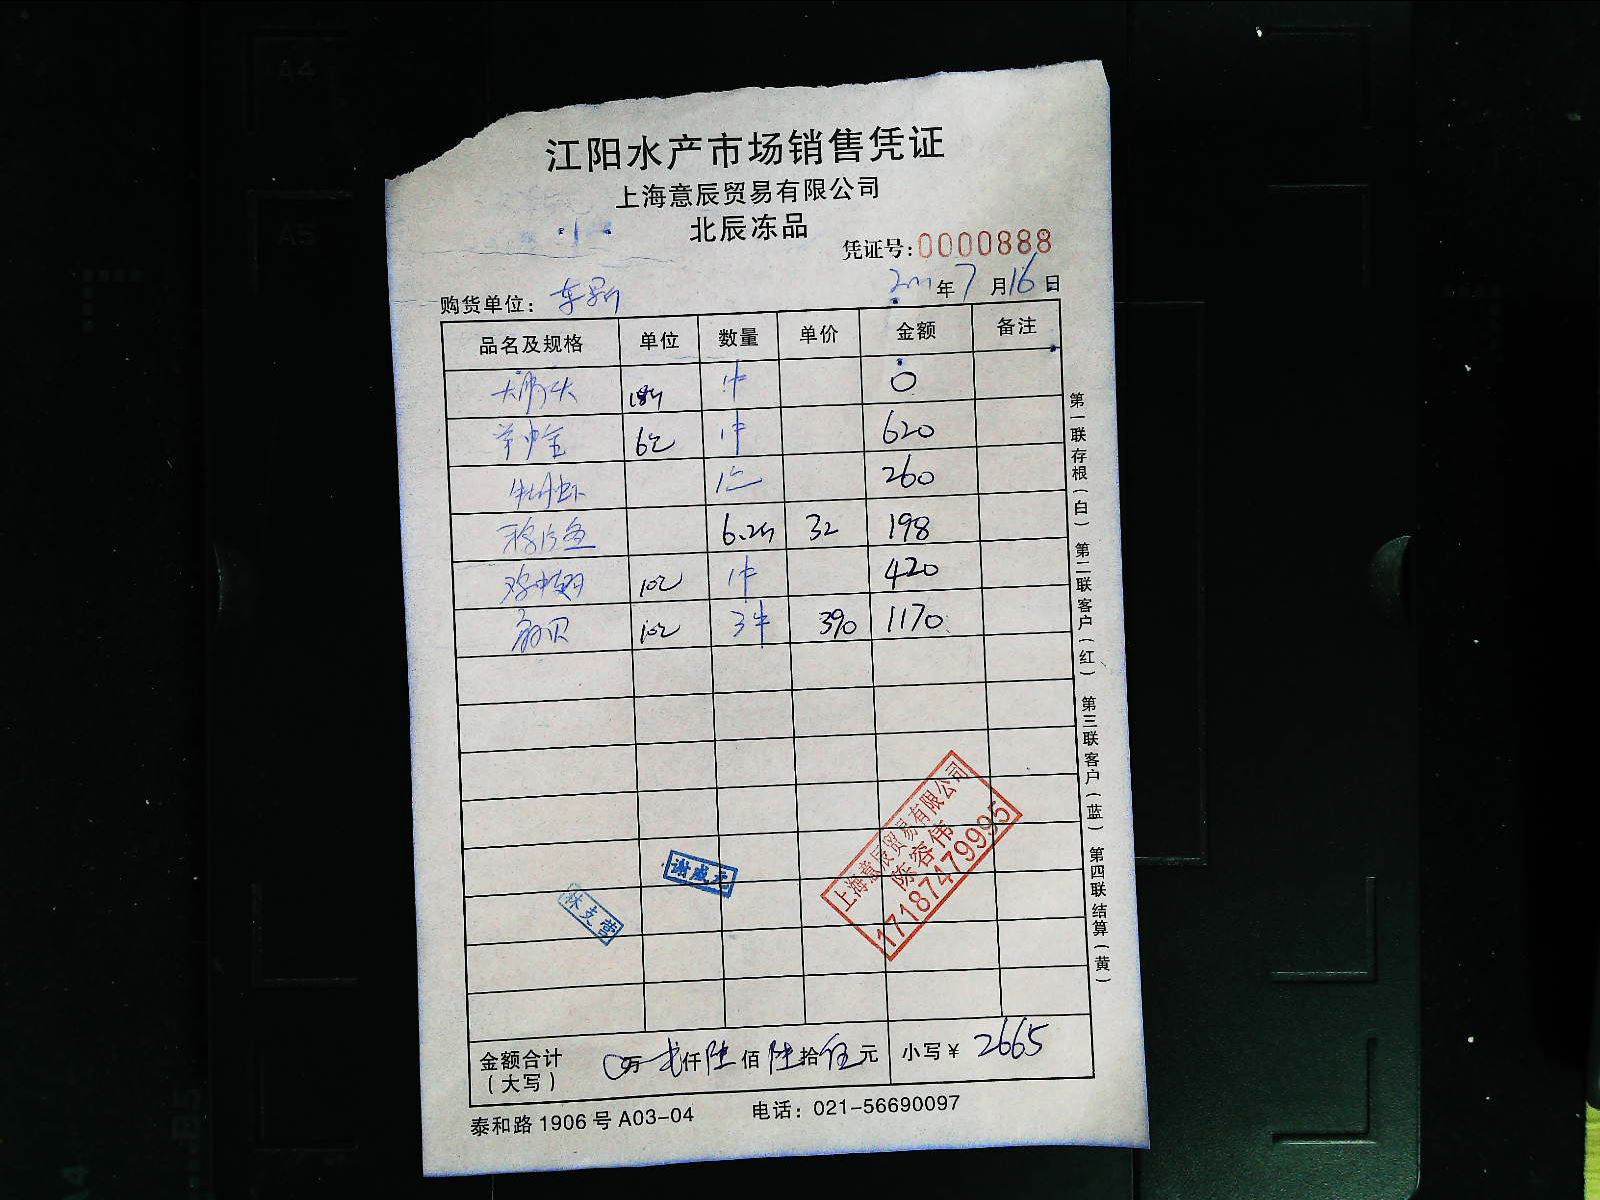 江阳水产市场销售凭证
上海意辰贸易有限公司
北辰冻品
凭证号:0000888
年7月16日
购货单位:
品名及规格 单位 数量 单价 金额 备注
1件 0
6亿 1件 620
牡丹虾 1 260
6.2斤 32 198
鸡中翅 10亿 1件 420
扇贝 10亿 3件 390 1170
上海意辰贸易有限公司
陈容伟
17187479995
谢威元
林支营
金额合计 0万贰仟陆佰陆拾伍元 小写¥2665
(大写)
泰和路1906号A03-04 电话:021-56690097
第一联存根(白) 第二联客户(红) 第三联客户(蓝) 第四联结算(黄)
A4
A5